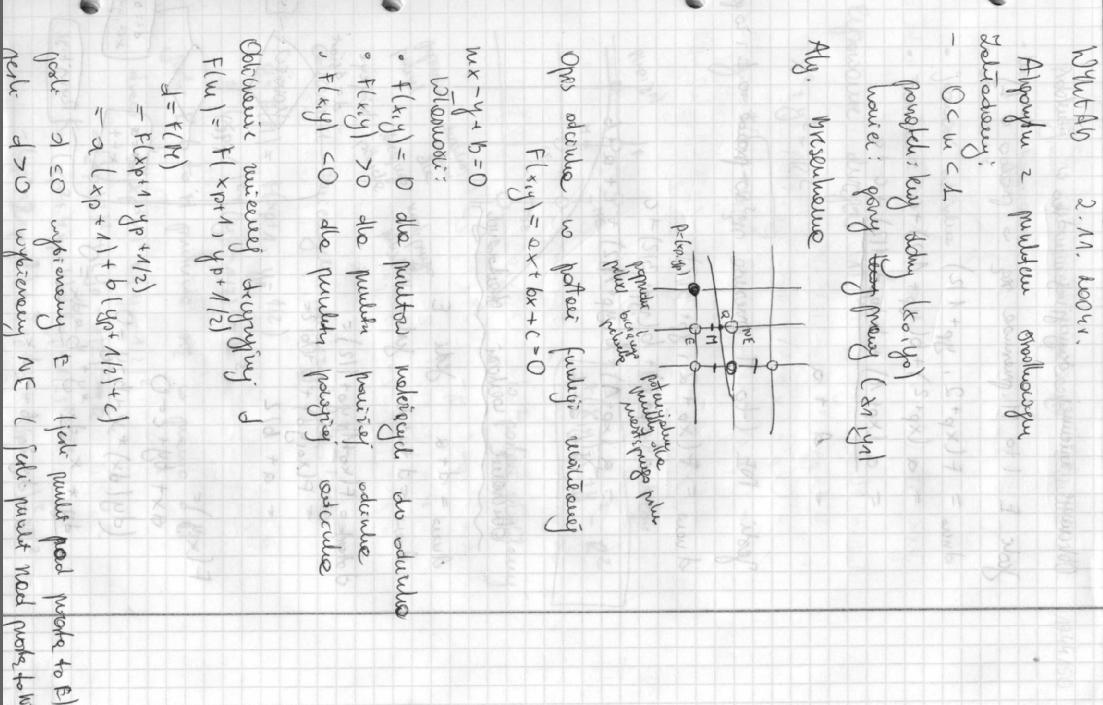 WYKŁAD 2.11.2004r.
Algorytm z punktem środkowym
Zakładamy:
- 0 < m < 1
początek: lewy dolny (x0, y0)
koniec: górny prawy (x1, y1)
Alg. Bresenhama
P=(xp, yp)
NE
Q
M
E
poprzedni piksel
bieżącego piksela
potencjalne punkty dla następnego piksla
Opis odcinka w postaci funkcji uwikłanej
F(x,y) = ax + bx + c = 0
mx - y + B = 0
Własności:
• F(x,y) = 0 dla punktów należących do odcinka
• F(x,y) > 0 dla punktu poniżej odcinka
• F(x,y) < 0 dla punktu powyżej odcinka
Obliczenie zmiennej decyzyjnej d
F(M) = F(xp+1, yp+1/2)
d = F(M)
= F(xp+1, yp+1/2)
= a(xp+1) + b(yp+1/2) + c)
jeśli d ≤ 0 wybieramy E (jeśli punkt pod prostą to E)
jeśli d > 0 wybieramy NE (jeśli punkt nad prostą to